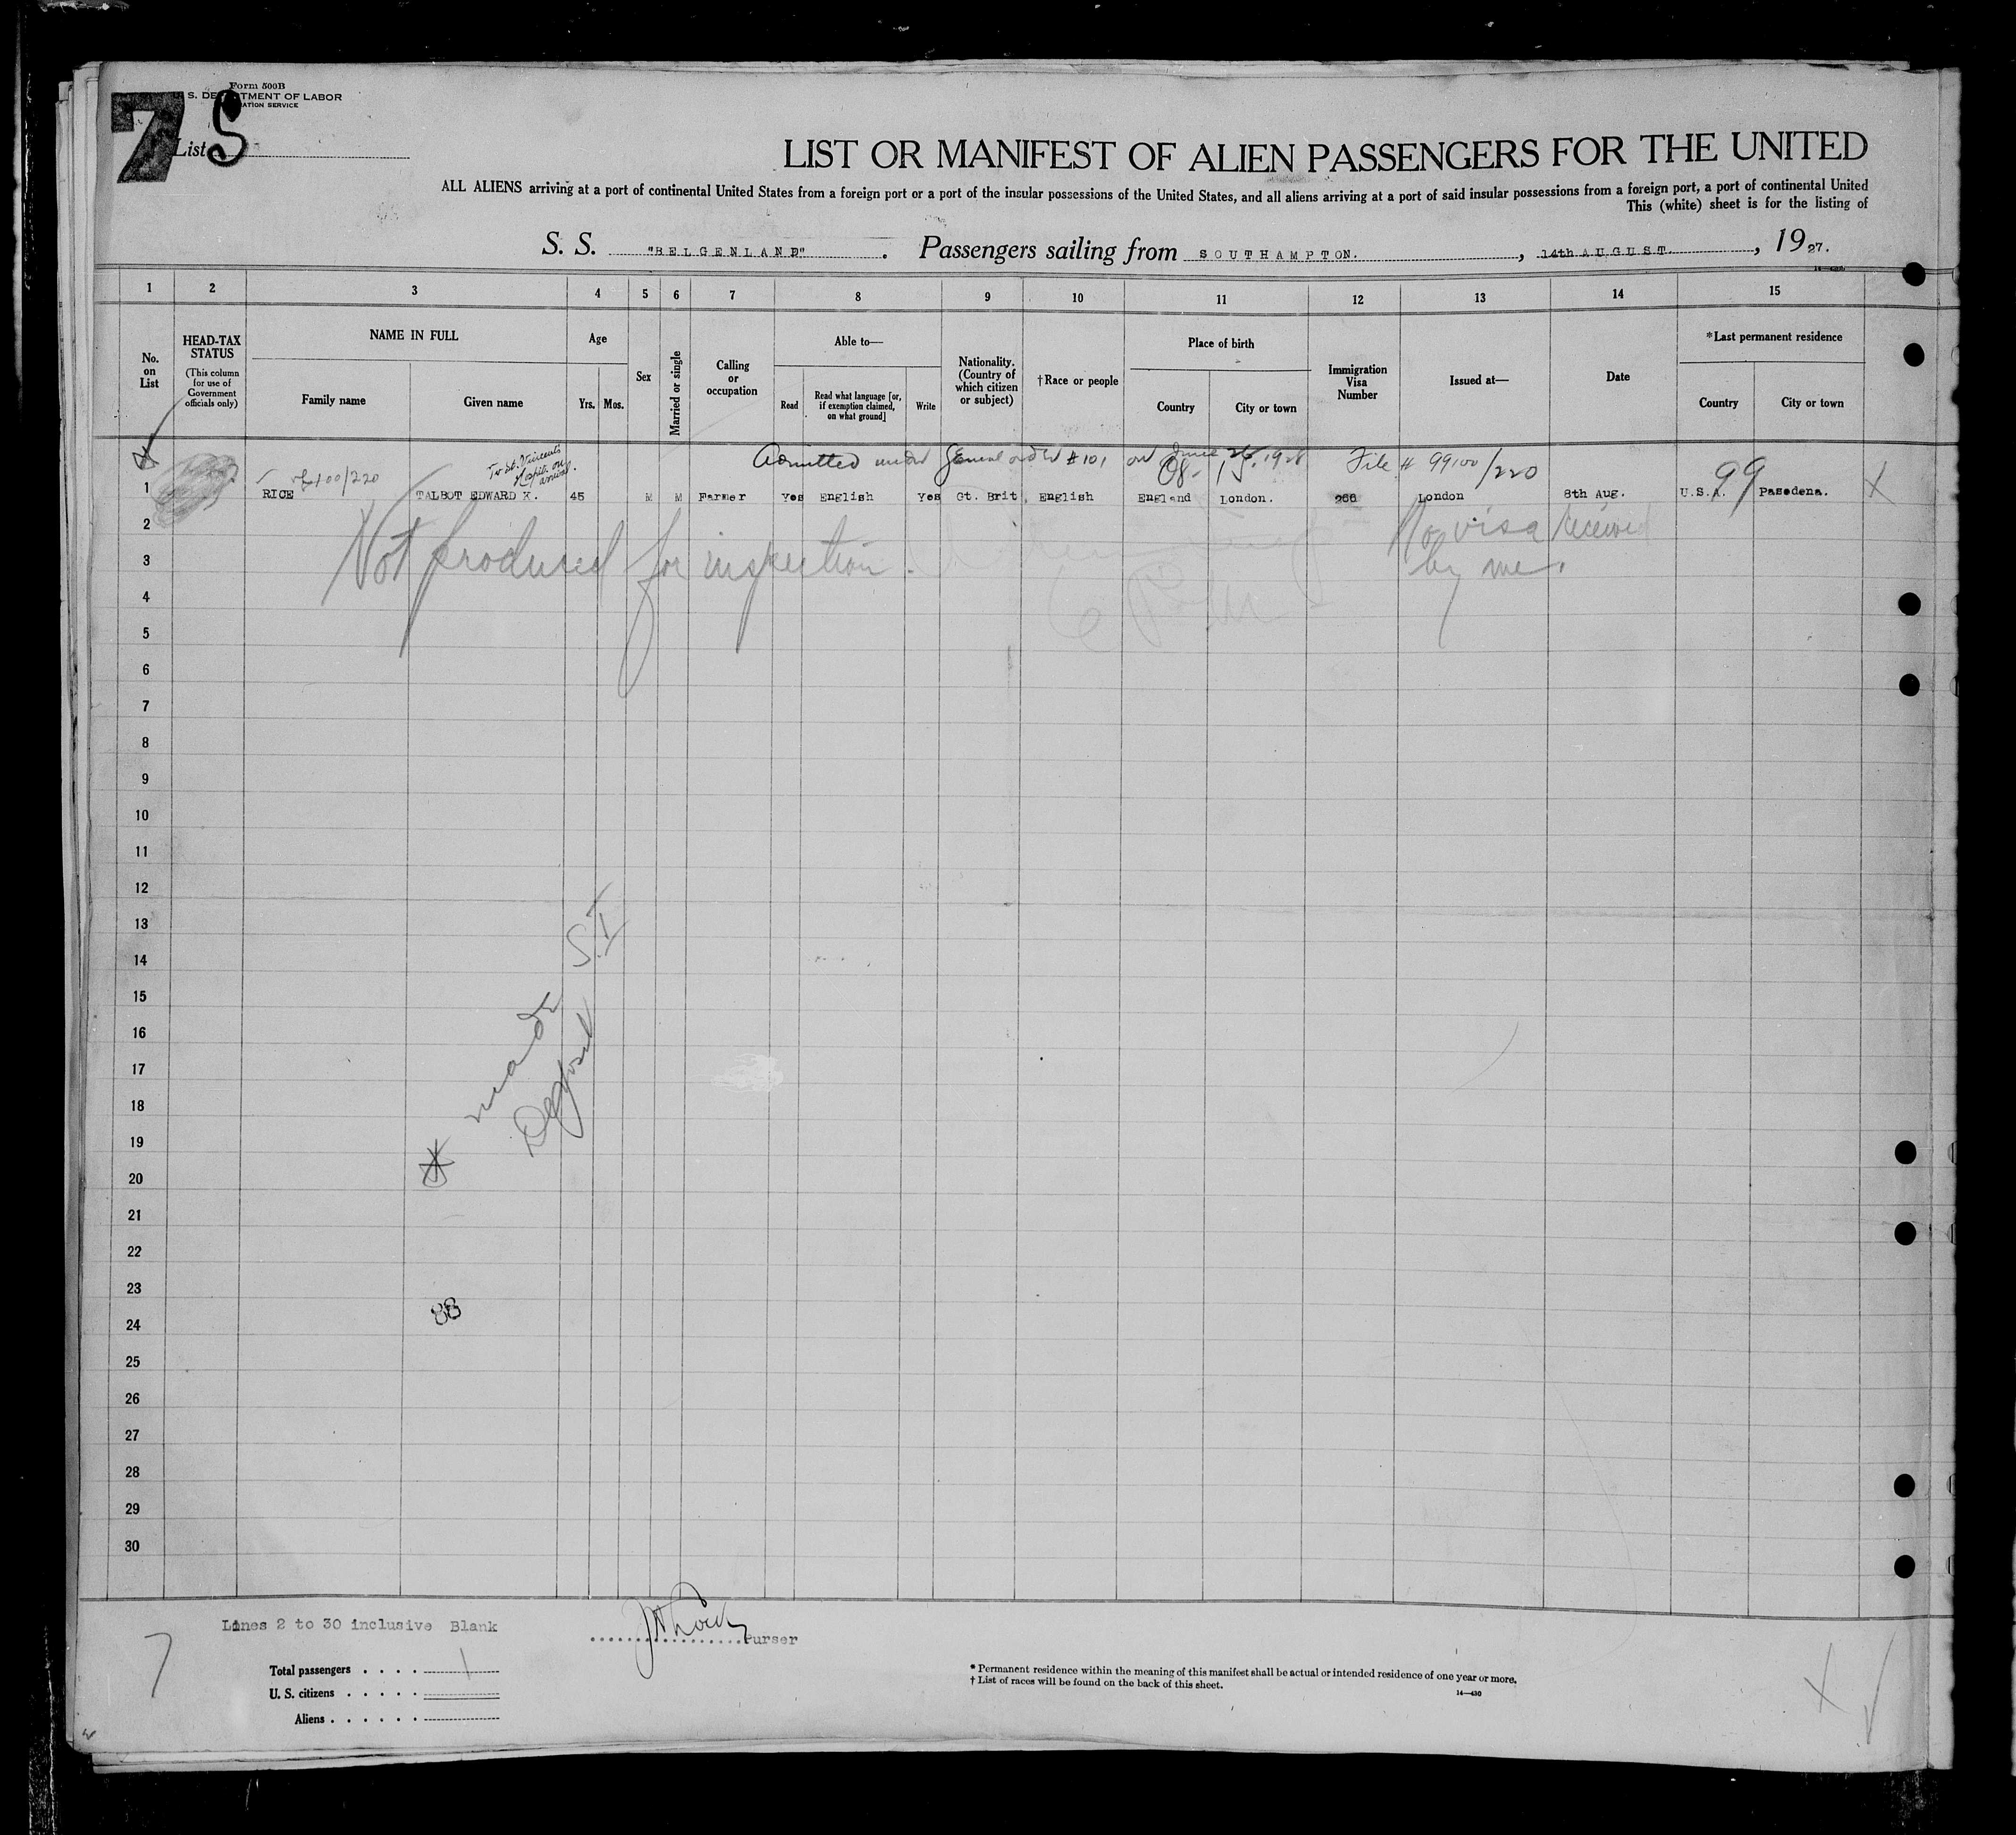 Form 500B
S. DEPARTMENT OF LABOR
IMMIGRATION SERVICE
7
List S
LIST OR MANIFEST OF ALIEN PASSENGERS FOR THE UNITED
ALL ALIENS arriving at a port of continental United States from a foreign port or a port of the insular possessions of the United States, and all aliens arriving at a port of said insular possessions from a foreign port, a port of continental United
This (white) sheet is for the listing of
S. S. "BELGENLAND". Passengers sailing from SOUTHAMPTON. , 14th AUGUST. , 1927.
1 2 3 4 5 6 7 8 9 10 11 12 13 14 15
No. on List
HEAD-TAX STATUS
(This column for use of Government officials only)
NAME IN FULL
Family name
Given name
Age
Yrs. Mos.
Sex
Married or single
Calling or occupation
Able to—
Read
Read what language [or, if exemption claimed, on what ground]
Write
Nationality. (Country of which citizen or subject)
†Race or people
Place of birth
Country
City or town
Immigration Visa Number
Issued at—
Date
*Last permanent residence
Country
City or town
To St. Vincent's Hospital on arrival.
Admitted under General order #101 on June 26, 1928 File # 99100/220
1 RICE TALBOT EDWARD K. 45 M M Farmer Yes English Yes Gt. Brit English England London. 266 London 8th Aug. U.S.A. Pasedena.
99
Not produced for inspection.
No visa received
by me.
2
3
4
5
6
7
8
9
10
11
12
13
14
15
16
17
18
19
20
21
22
23
24
25
26
27
28
29
30
S.I
made
88
Lines 2 to 30 inclusive Blank
Purser
7
Total passengers . . . . 1
U. S. citizens . . . . .
Aliens . . . . . .
* Permanent residence within the meaning of this manifest shall be actual or intended residence of one year or more.
† List of races will be found on the back of this sheet.
14—430